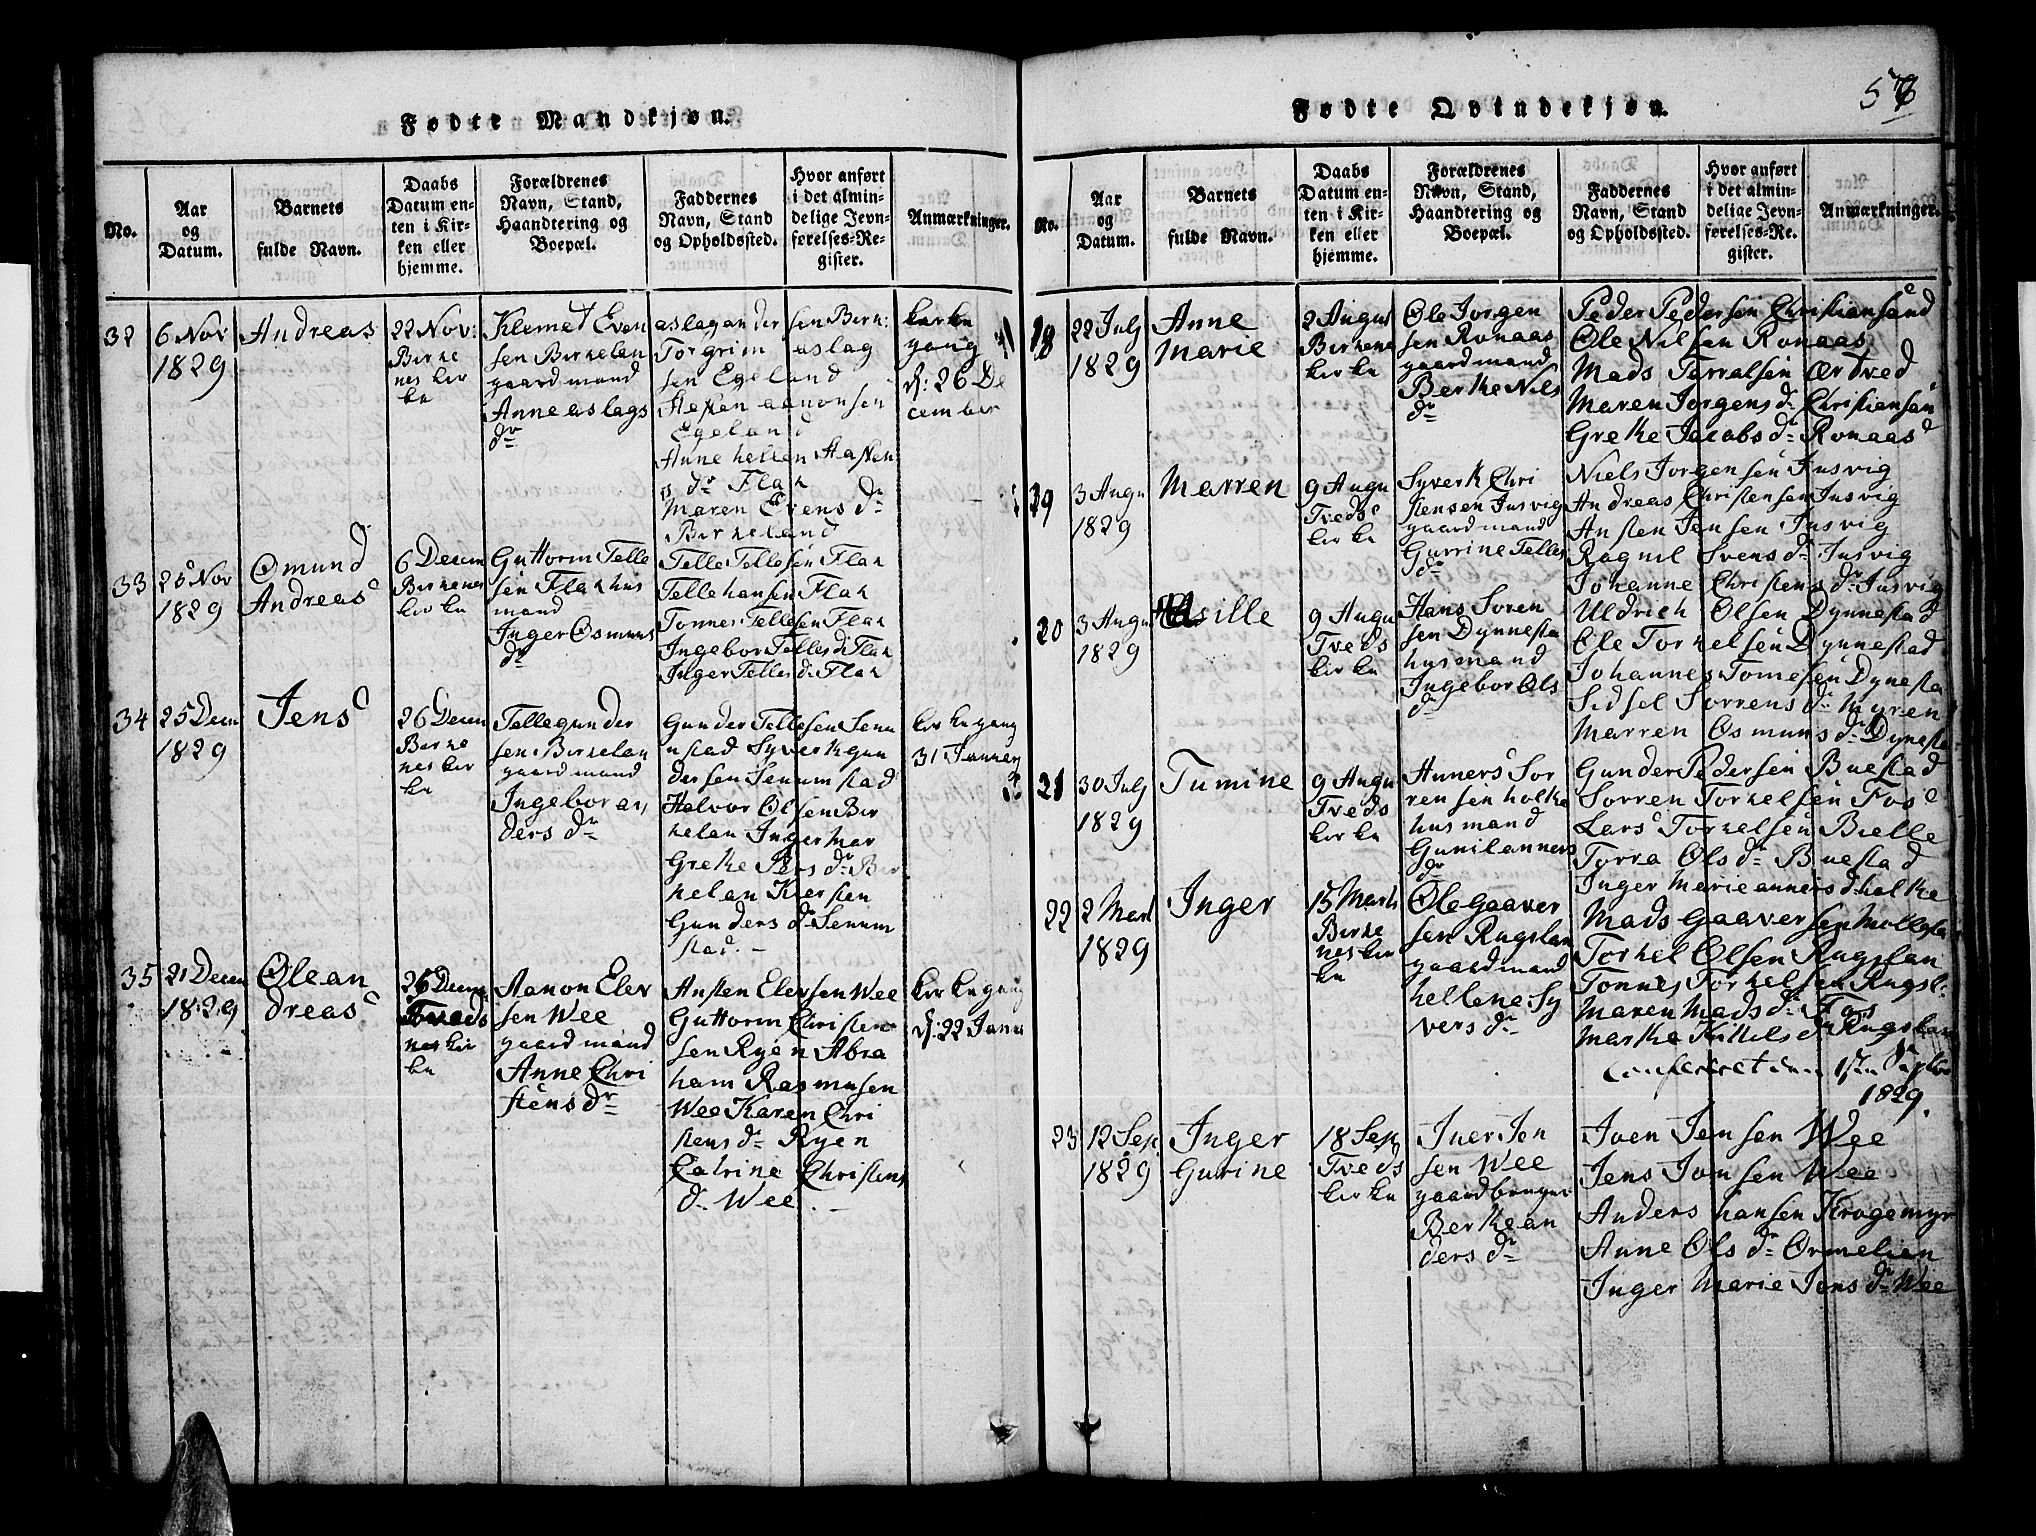 57
Fødte Mandkjøn.
No.
Aar
og
Datum.
Barnets
fulde Navn.
Daabs
Datum en-
ten i Kir-
ken eller
hjemme.
Forældrenes
Navn, Stand,
Haandtering og
Boepæl.
Faddernes
Navn, Stand
og Opholdssted.
Hvor anført
i det almin-
delige Jevn-
førelses-Re-
gister.
Anmærkninger.
32
6 Nov
1829
Andreas
22 Nov:
Birke
nes kir
ke
Klemet Even
sen Birkelan
gaardmand
Anne aslags
dr
aslag andersen Birk:
Torgrim aslag
sen Egeland
Steften aanonsen
Egeland
Anne hellen Aasten
s dr Flak
Maren Evens dr
Birkeland
kirke
gang
d: 26 De
cember
33
25 Nov
1829
Osmund
Andreas
6 Decem
Birkenes
kirke
Guttorm Telle
sen Flak hus
mand
Inger Osmuns
dr
Telle Tellesen Flak
Telle hansen Flak
Tonnes Tellesen Flak
Ingebor Telles d. Flak
Inger Telles d. Flak
34
25 Decm
1829
Jens
26 Decem
Birke
nes kir
ke
Telle gunder
sen Birkelan
gaardmand
Ingebor an
ders dr
Gunder Tellesen Senu
mstad Syvert gun
dersen Senumstad
Halvor Olsen Bir
kelan Inger mar
Grethe Pers dr Bir
kelan Kirsten
Gunders d. Senum
stad. —
kirkegang
31 Januer
35
21 Decem
1829
Ole an
dreas
26 Decem
nes kir
ke
Aanon Elev
sen Wee
gaardmand
Anne Chri
stens dr
Austen Elevsen Wee
Guttorm Christen
sen Ryen Abra
ham Rasmusen
Wee Karen Chri
stens dr Ryen
Catrine Christens
d. Wee. —
kirkegang
d: 22 Janu
Fødte Qvindekjøn.
No.
Aar
og
Datum.
Barnets
fulde Navn.
Daabs
Datum en-
ten i Kir-
ken eller
hjemme.
Forældrenes
Navn, Stand,
Haandtering og
Boepæl.
Faddernes
Navn, Stand
og Opholdssted.
Hvor anført
i det almin-
delige Jevn-
førelses-Re-
gister.
Anmærkninger.
18
22 July
1829
Anne
Marie
2 August
Birkene
kirke
Ole Jorgen
sen Ronaas
gaardmand
Berthe Nils
dr
Peder Pedersen Christiansand
Ole Nilsen Ronaas
Mads Terralsen Ærtved
Maren Jorgens dr Christiansan
Grethe Jacobs dr Ronaas
19
3 Augu
1829
Marren
9 Augu
Tveds
kirke
Syvert Chri
stensen Jusvig
gaardmand
Gurrine Telles
dr
Niels Jorgensen Jusvig
Andreas Christensen Jusvig
Austen Jensen Jusvig
Ragnil Svens dr Jusvig
Johanne Christens dr Jusvig
20
3 Augu
1829
Asille
9 Augu
Tveds
kirke
Hans Soren
sen Dynnesta
husmand
Ingebor Ols
dr
Uldrich Olsen Dynnestad
Ole Torkelsen Dynnestad
Johannes Tomesen Dynesta
Sidsel Sorrens dr Myren
Marren Osmuns dr Dynesta
21
30 July
1829
Tumine
9 Augu
Tveds
kirke
Anners Sor
rensen holke
husmand
Gunil anners
dr
Gunder Pedersen Buestad
Sorren Torkelsen Fos
Lars Torkelsen Bielle
Torra Ols dr Buestad
Inger Marie anners d. holke
22
2 Mart
1829
Inger
15 Marts
Birke
nes kir
ke
Ole Gaaver
sen Rugslan
gaardmand
hellene Sy
vers dr
Mads Gaaversen Mollesta
Torkel Olsen Rugslan
Tonnes Torkelsen Rugsl:
Maren Mads dr Fos
Marthe Kittels dr Rugslan
1829.
23
12 Sep
1829
Inger
Gurine
18 Sep
Tveds
kirke
Iver Jen
sen Wee
gaardbruger
Berthe an
ders dr
Iven Jensen Wee
Jens Jonsen Wee
Anders hansen Krogemyr
Anne Ols dr Ormelien
Inger Marie Jons dr Wee